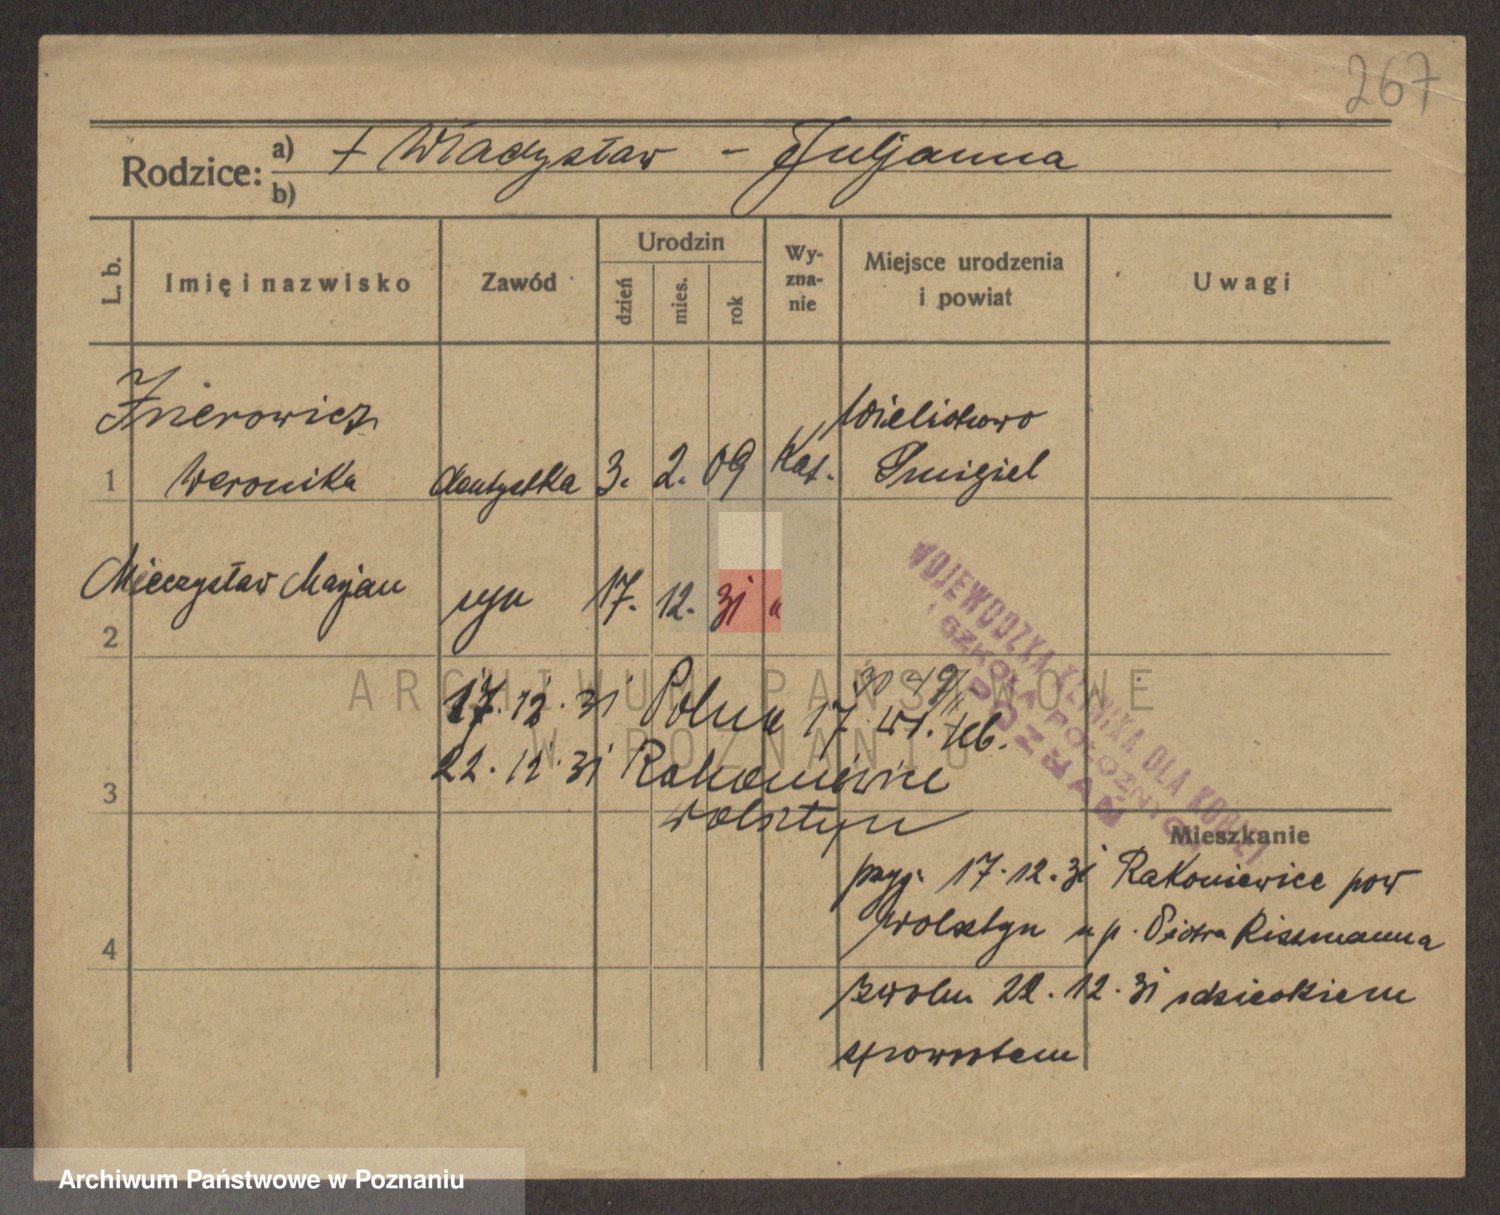 267
Rodzice: a) + Władysław - Juljanna
b)
L. b. Imię i nazwisko Zawód Urodzin dzień mies. rok Wy-zna-nie Miejsce urodzenia i powiat Uwagi
Żnierowicz Wielichowo
1 Weronika dentystka 3. 2. 09 Kat. Śmigiel
Mieczysław Marjan syn 17. 12. 31 "
2
WOJEWÓDZKA KLINIKA DLA KOBIET
I SZKOŁA POŁOŻNYCH
POZNAŃ
17. 12. 31 Polna 17
22. 12. 31 Rakoniewice
3 Wolsztyn
Mieszkanie
przyj. 17. 12. 31 Rakoniewice pow
Wolsztyn u p. Piotra Riszmanna
4
zwoln. 22. 12. 31 z dzieckiem
zpowrotem
ARCHIWUM PAŃSTWOWE
W POZNANIU
Archiwum Państwowe w Poznaniu